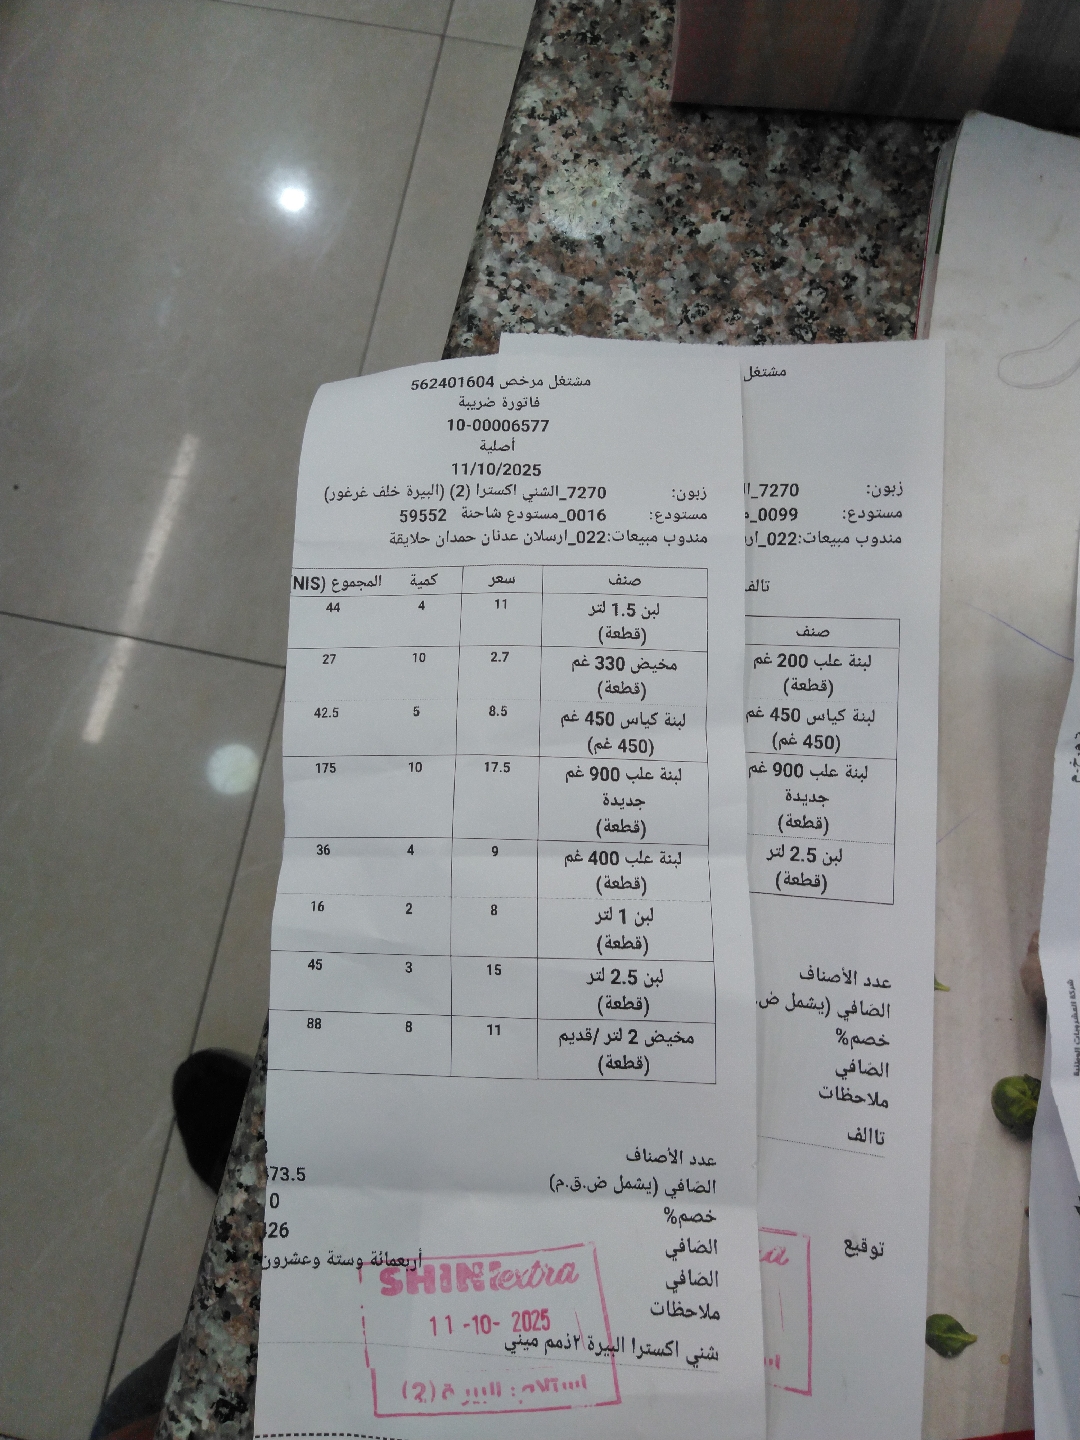 مشتغل مرخص 562401604
فاتورة ضريبة
10-00006577
أصلية
11/10/2025
زبون: 7270_الشني اكسترا (2) (البيرة خلف غرغور)
مستودع: 0016_مستودع شاحنة 59552
مندوب مبيعات:022_ارسلان عدنان حمدان حلايقة
صنف سعر كمية المجموع (NIS
لبن 1.5 لتر 11 4 44
(قطعة)
مخيض 330 غم 2.7 10 27
(قطعة)
لبنة كياس 450 غم 8.5 5 42.5
(450 غم)
لبنة علب 900 غم 17.5 10 175
جديدة
(قطعة)
لبنة علب 400 غم 9 4 36
(قطعة)
لبن 1 لتر 8 2 16
(قطعة)
لبن 2.5 لتر 15 3 45
(قطعة)
مخيض 2 لتر /قديم 11 8 88
(قطعة)
عدد الأصناف
الصافي (يشمل ض.ق.م) 73.5
خصم% 0
الصافي 26
الصافي أربعمائة وستة وعشرون
ملاحظات
شني اكسترا البيرة ٢ذمم ميني
SHINI extra
11-10- 2025
استلام: البيرة (2)
مشتغل
زبون: 7270_ال
مستودع: 0099_م
مندوب مبيعات:022_ار
تالف
صنف
لبنة علب 200 غم
(قطعة)
لبنة كياس 450 غم
(450 غم)
لبنة علب 900 غم
جديدة
(قطعة)
لبن 2.5 لتر
(قطعة)
عدد الأصناف
الصافي (يشمل ض.
خصم%
الصافي
ملاحظات
تاالف
توقيع